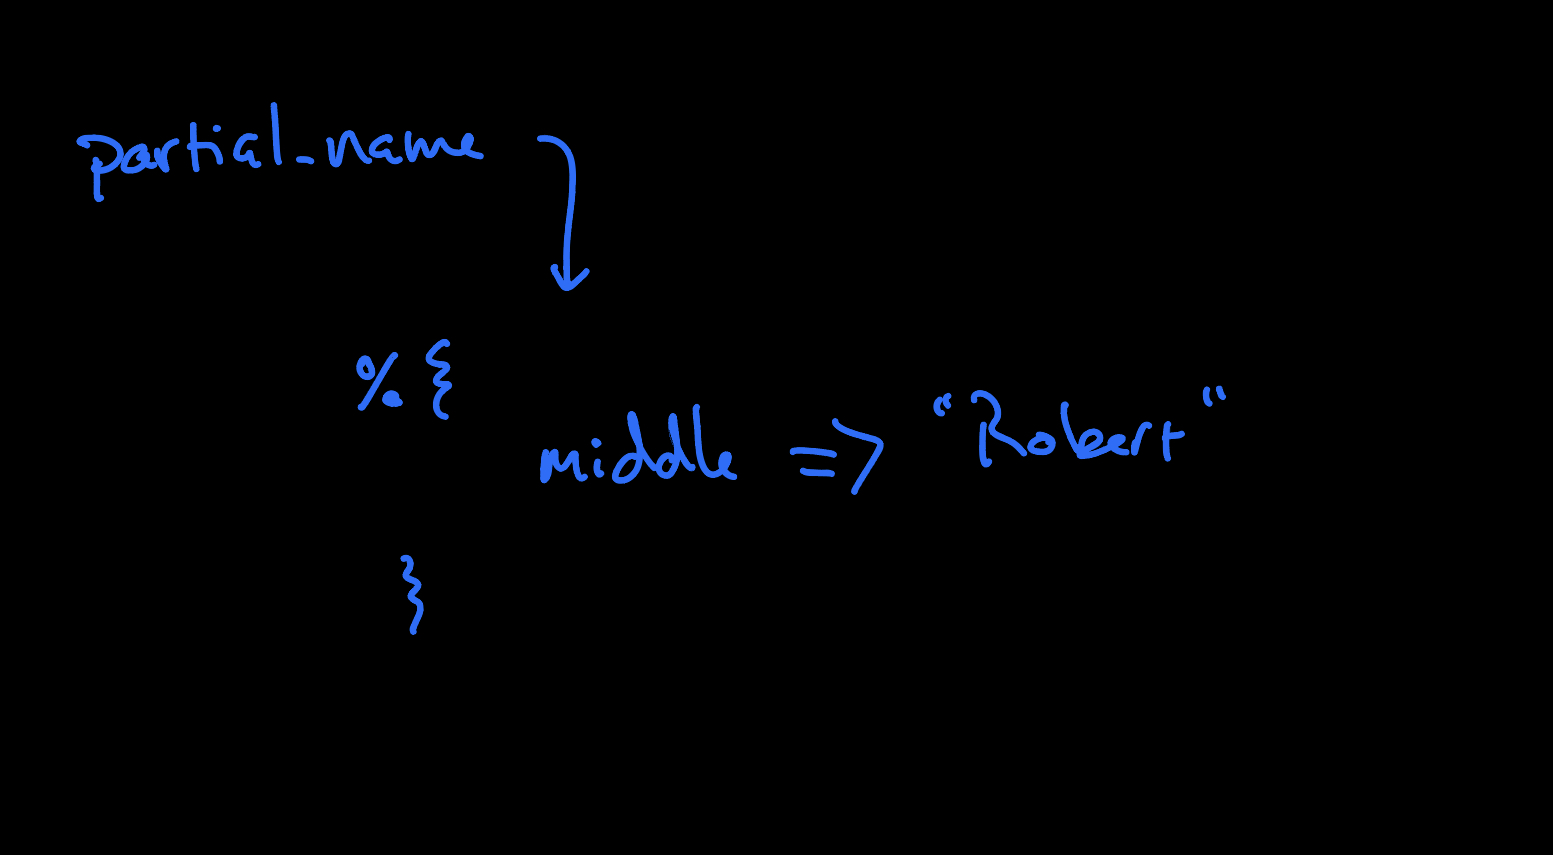 partial_name
%{
middle => "Robert"
}